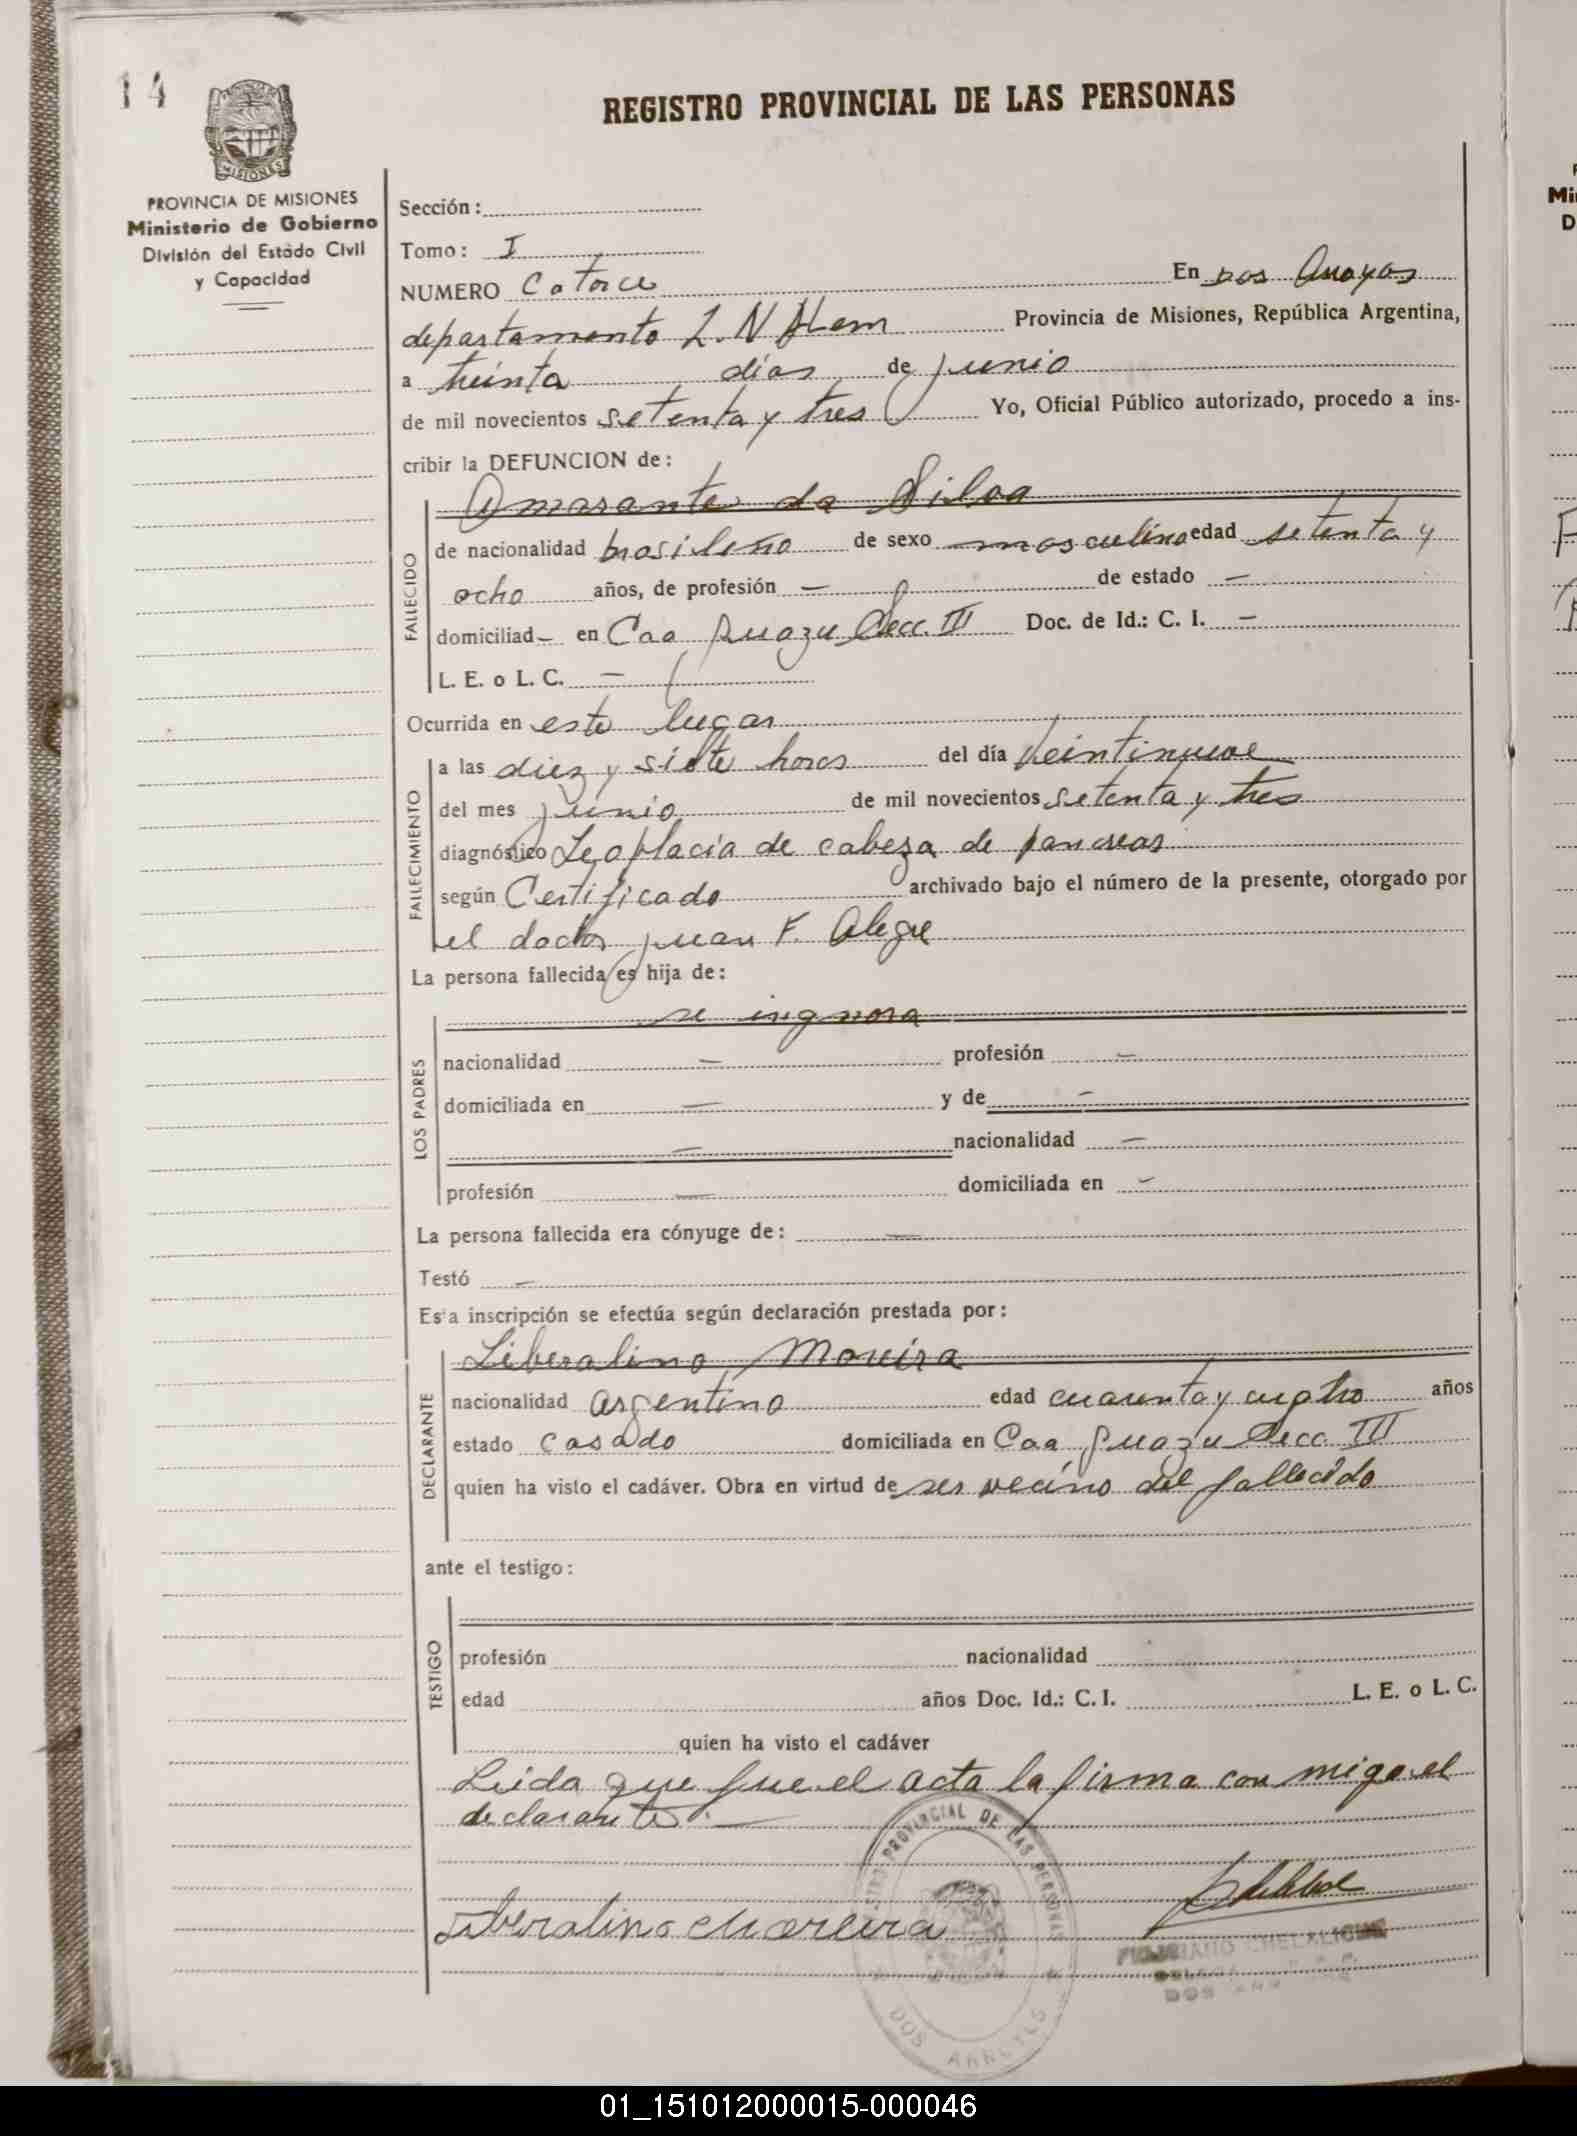 14
REGISTRO PROVINCIAL DE LAS PERSONAS
MISIONES
PROVINCIA DE MISIONES
Ministerio de Gobierno
División del Estado Civil
y Capacidad
Sección:
Tomo: I
NUMERO Catorce En Dos Arroyos
departamento L. N Alem Provincia de Misiones, República Argentina,
a treinta días de junio
de mil novecientos setenta y tres Yo, Oficial Público autorizado, procedo a ins-
cribir la DEFUNCION de:
Amarante da Silva
FALLECIDO
de nacionalidad brasileño de sexo masculino edad setenta y
ocho años, de profesión — de estado —
domiciliad— en Caa Guazu Secc. III Doc. de Id.: C. I. —
L. E. o L. C. —
Ocurrida en este lugar
FALLECIMIENTO
a las diez y siete horas del día veintinueve
del mes junio de mil novecientos setenta y tres
diagnóstico Leoplacia de cabeza de pancreas
según Certificado archivado bajo el número de la presente, otorgado por
el doctor Juan F. Alegre
La persona fallecida es hija de:
LOS PADRES
se ingnora
nacionalidad — profesión —
domiciliada en — y de —
— nacionalidad —
profesión — domiciliada en —
La persona fallecida era cónyuge de: —
Testó —
Esta inscripción se efectúa según declaración prestada por:
DECLARANTE
Liberalino Moreira
nacionalidad argentino edad cuarenta y cuatro años
estado casado domiciliada en Caa Guazu Secc. III
quien ha visto el cadáver. Obra en virtud de ser vecino del fallecido
ante el testigo:
TESTIGO
profesión nacionalidad
edad años Doc. Id.: C. I. L. E. o L. C.
quien ha visto el cadáver
Leida que fue el acta la firma con migo el
declarante.—
PROVINCIAL DE LAS PERSONAS
Liberalino Moreira
DOS ARROYOS
DOS
Mi
D
01_151012000015-000046